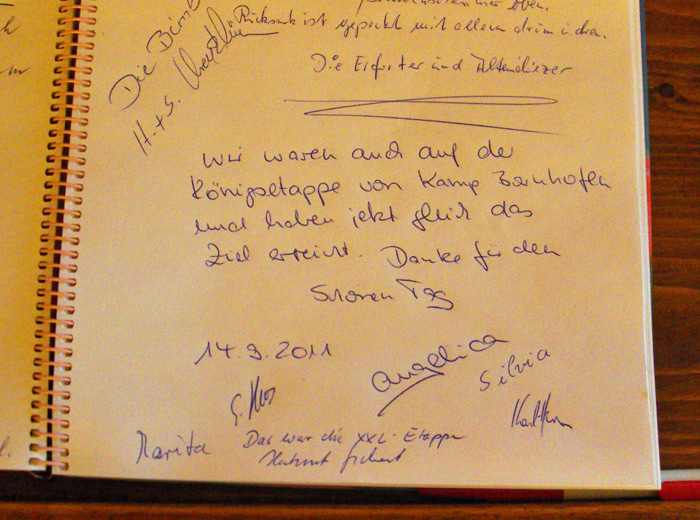 Rucksack ist gepackt mit allem drum u dran.
Die Erfurter und
Die
H. + S.
Wir waren auch auf der
Königsetappe von Kamp Bornhofen
und haben jetzt gleich das
Ziel erreicht. Danke für den
schönen Tag
14.9.2011
Angelica
Silvia
Marita
Das war die XXL-Etappe